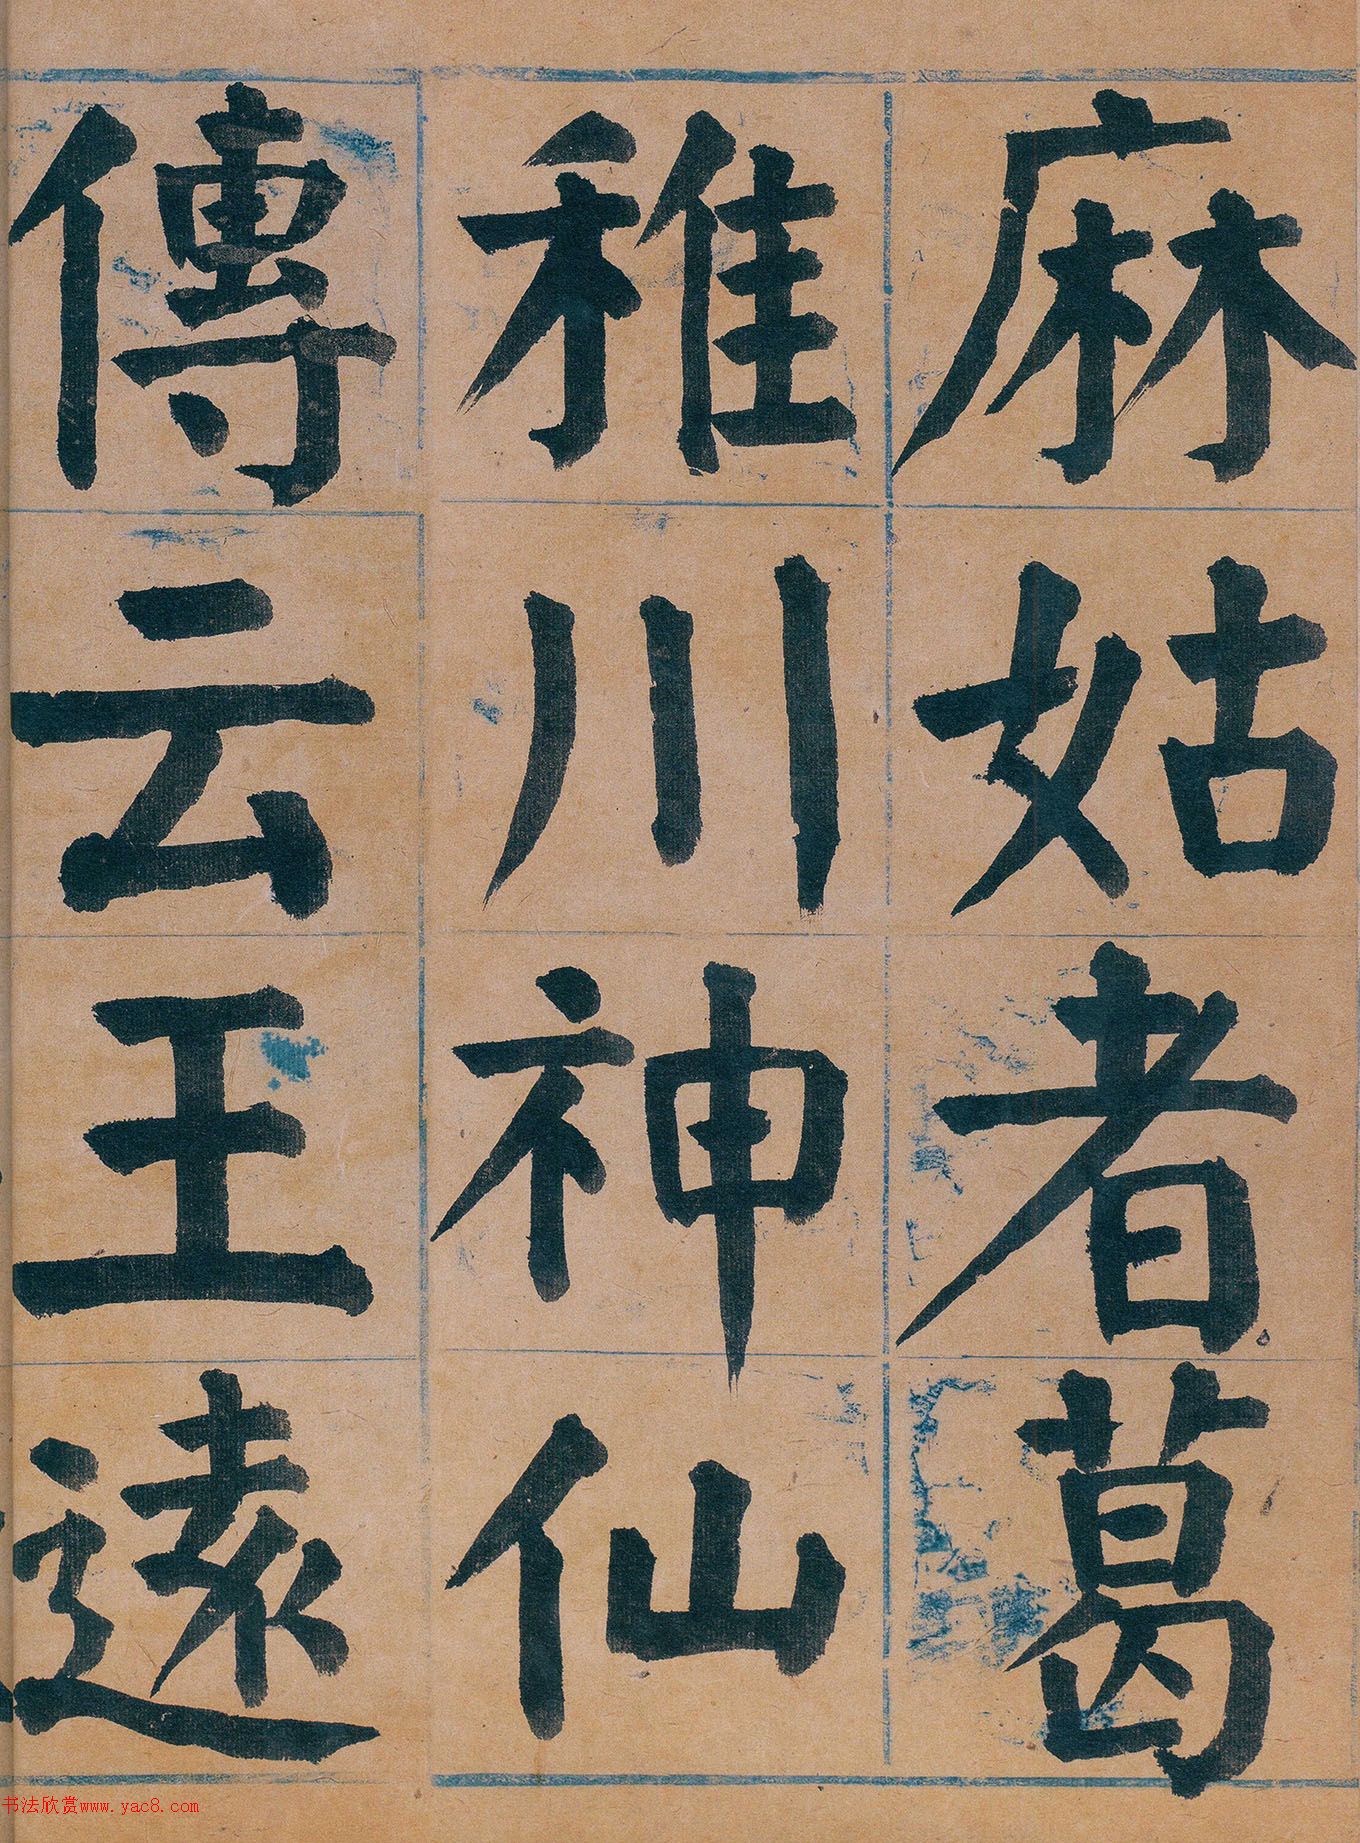 麻姑者葛
稚川神仙
傳云王遠
书法欣赏www.yac8.com